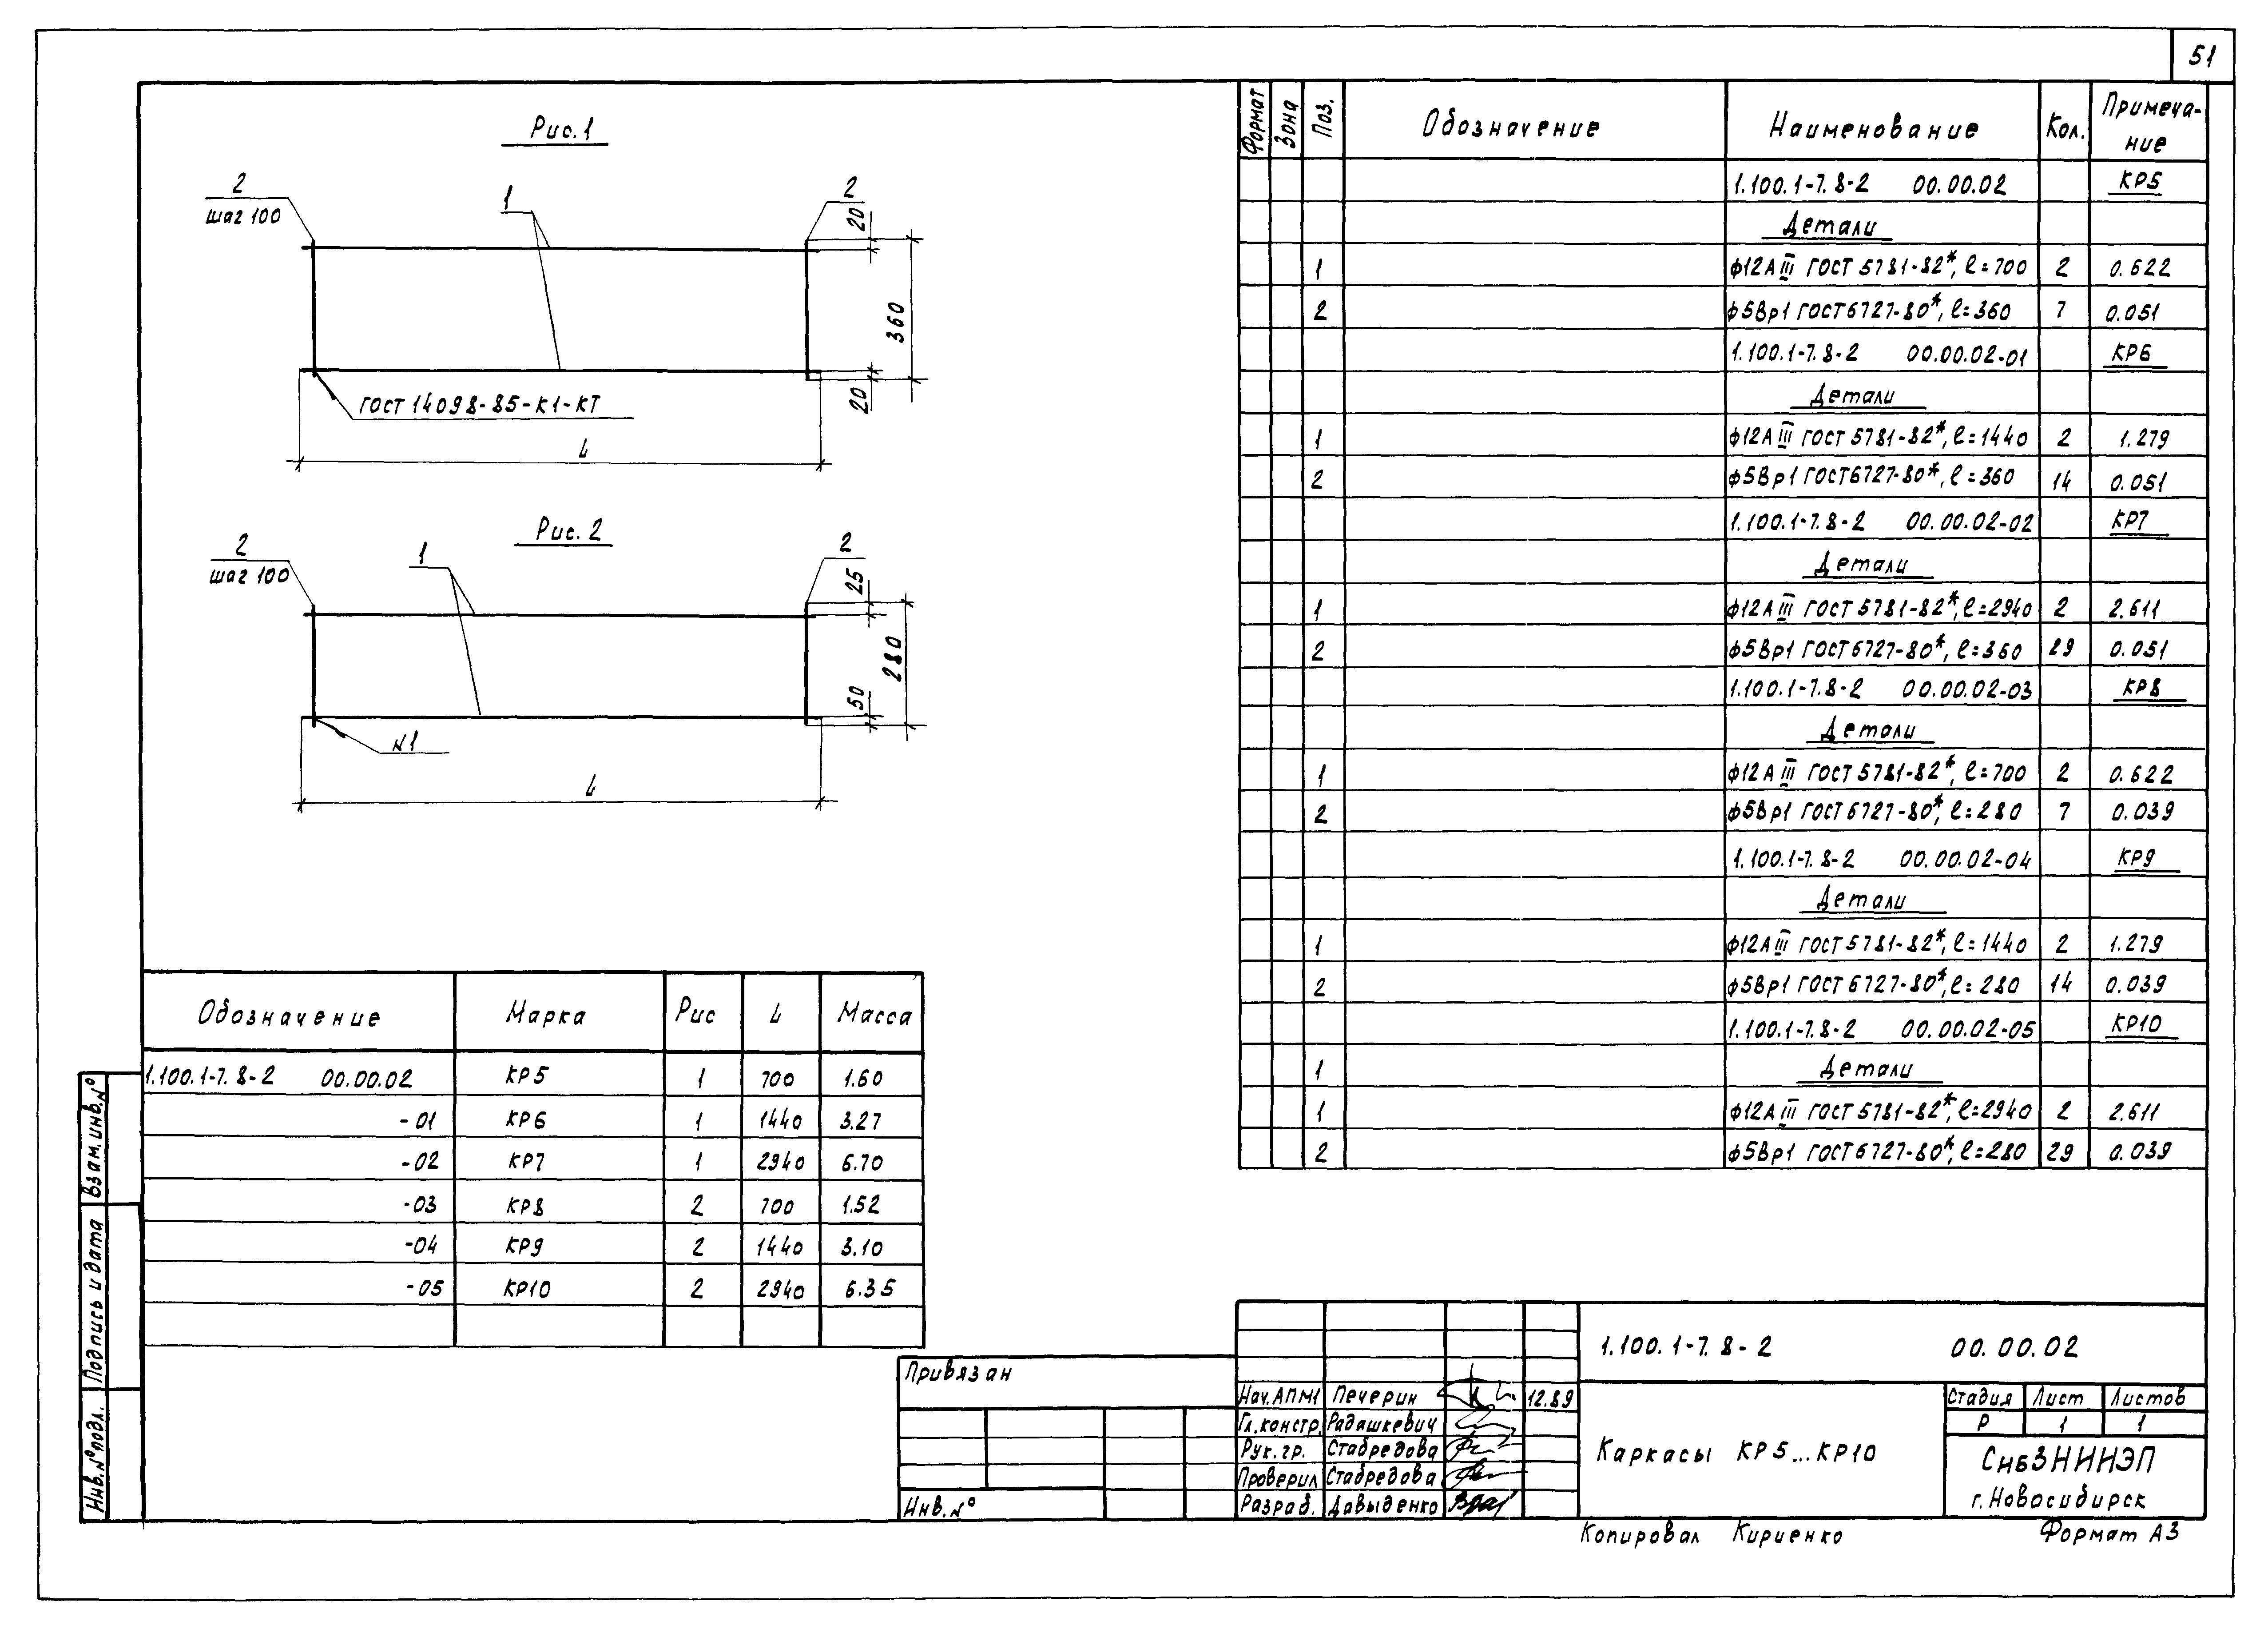 51
Рис.1
2
шаг 100
1
2
20
360
20
ГОСТ 14098-85-К1-КТ
L
Рис. 2
2
шаг 100
1
2
25
280
50
№1
L
Обозначение Марка Рис L Масса
1.100.1-7.8-2 00.00.02 КР5 1 700 1.60
-01 КР6 1 1440 3.27
-02 КР7 1 2940 6.70
-03 КР8 2 700 1.52
-04 КР9 2 1440 3.10
-05 КР10 2 2940 6.35
Формат Зона Поз. Обозначение Наименование Кол. Примеча-
ние
1.100.1-7.8-2 00.00.02 КР5
Детали
1 ф12АIII ГОСТ 5781-82*, ℓ=700 2 0.622
2 ф5Вр1 ГОСТ6727-80*, ℓ=360 7 0.051
1.100.1-7.8-2 00.00.02-01 КР6
Детали
1 ф12АIII ГОСТ 5781-82*, ℓ=1440 2 1.279
2 ф5Вр1 ГОСТ6727-80*, ℓ=360 14 0.051
1.100.1-7.8-2 00.00.02-02 КР7
Детали
1 ф12АIII ГОСТ 5781-82*, ℓ=2940 2 2.611
2 ф5Вр1 ГОСТ6727-80*, ℓ=360 29 0.051
1.100.1-7.8-2 00.00.02-03 КР8
Детали
1 ф12АIII ГОСТ 5781-82*, ℓ=700 2 0.622
2 ф5Вр1 ГОСТ6727-80*, ℓ=280 7 0.039
1.100.1-7.8-2 00.00.02-04 КР9
Детали
1 ф12АIII ГОСТ 5781-82*, ℓ=1440 2 1.279
2 ф5Вр1 ГОСТ6727-80*, ℓ=280 14 0.039
1.100.1-7.8-2 00.00.02-05 КР10
1 Детали
1 ф12АIII ГОСТ 5781-82*, ℓ=2940 2 2.611
2 ф5Вр1 ГОСТ6727-80*, ℓ=280 29 0.039
Взам.инв.№
Подпись и дата
Инв.№подл.
Привязан
Инв.№
Нач.АПМ1 Печерин 12.89
Гл.констр. Радашкевич
Рук.гр. Стабредова
Проверил Стабредова
Разраб. Давыденко
1.100.1-7.8-2 00.00.02
Каркасы КР5...КР10
Стадия Лист Листов
Р 1 1
СибЗНИИЭП
г.Новосибирск
Копировал Кириенко Формат А3